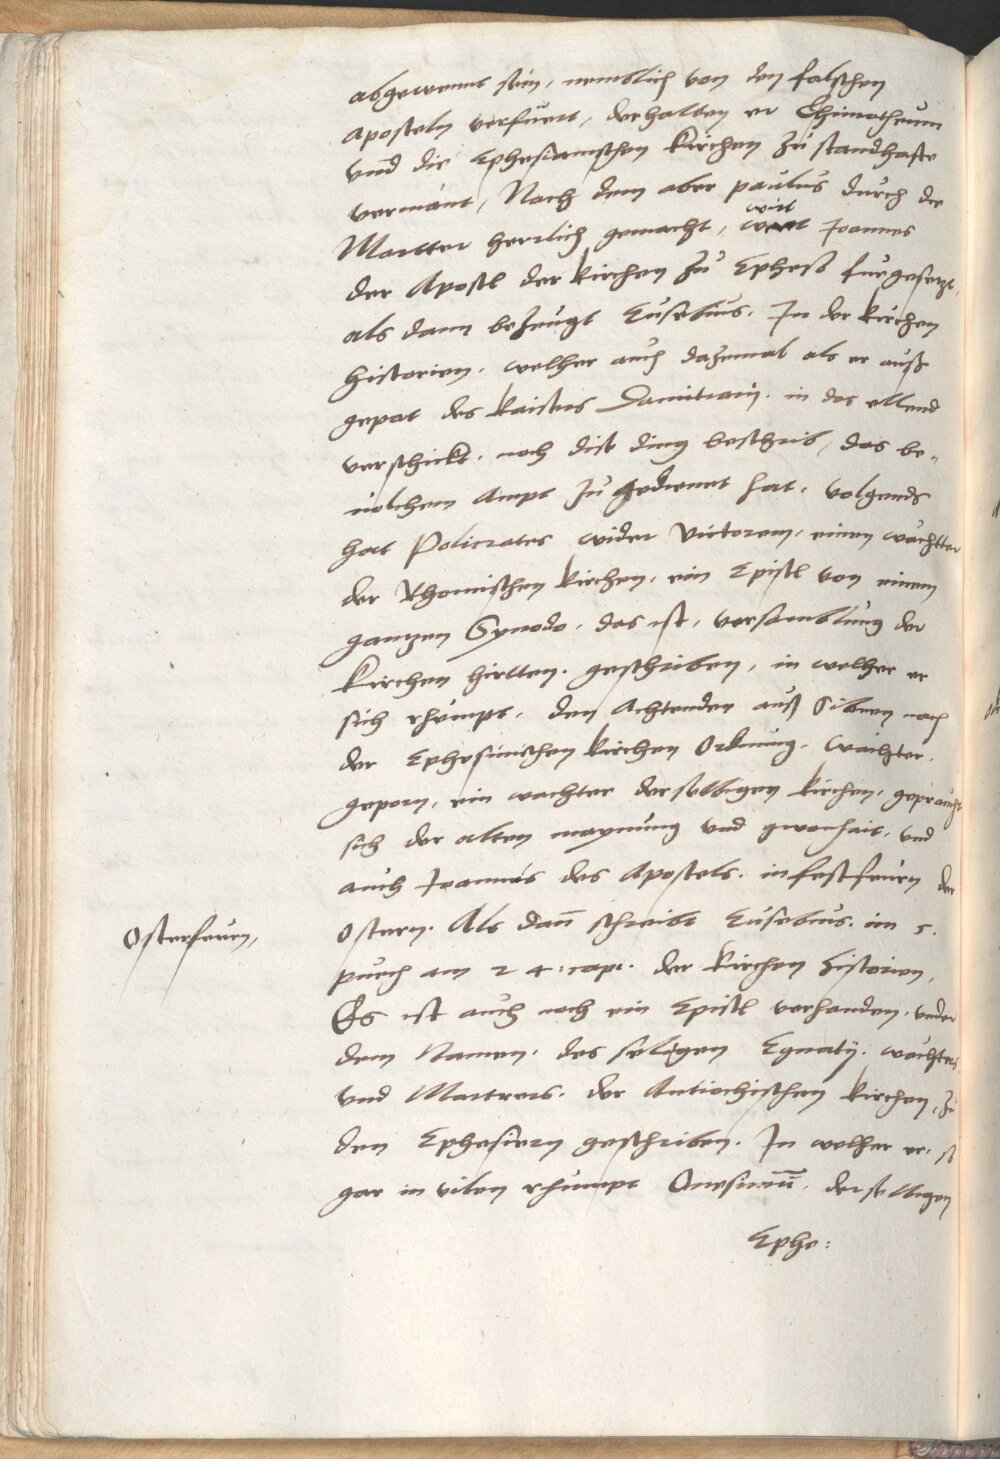 abgewennt sein, nemblich von den falschen
Aposteln verfuert, derhalten er Thimotheum
vnd die Ephesiamischen kirchen zu standhafte
vermant, Nach dem aber paulus durch die
Martter herrlich gemacht, wirt Joannes
der Apostl der kirchen zu Epheso furgesetzt,
als dann bezeugt Eusebius. In der kirchen
historien. welher auch dazemal als er auß
gepot des kaisers Damitiani. in das ellend
verschickt. noch dise ding beschrib, das be-
uolchem Ampt zu gedienet hat. volgends
hat Policrates wider Victorem, einen wachtter
der Rhomischen kirchen, ein Epistl von einem
gantzen Synodo. das ist, versamblung der
kirchen hirtten. geschriben, in welher er
sich rhumpt. den Achtenden auß Siben nach
der Ephesinischen kirchen Ordnung. wachter.
geporn, ein wachter derselbigen kirchen, gepraucht
sich der alten maynung vnd gwonhait, vnd
auch Joannes des Apostels. in festfeurn der
Osterfeurn,
Ostern. Als dan̄ schreibt Eusebius. im 5.
puech am 24: capt. der kirchen historien,
Es ist auch noch ein Epistl verhanden, vnder
dem Namen. des seligen Egnatij. wachters
vnd Martrers. der Antiochischen kirchen, zu
den Ephesiern geschriben. In welher er, so
gar in vilen rhumpt Onesimu̅, derselbigen
Ephe: